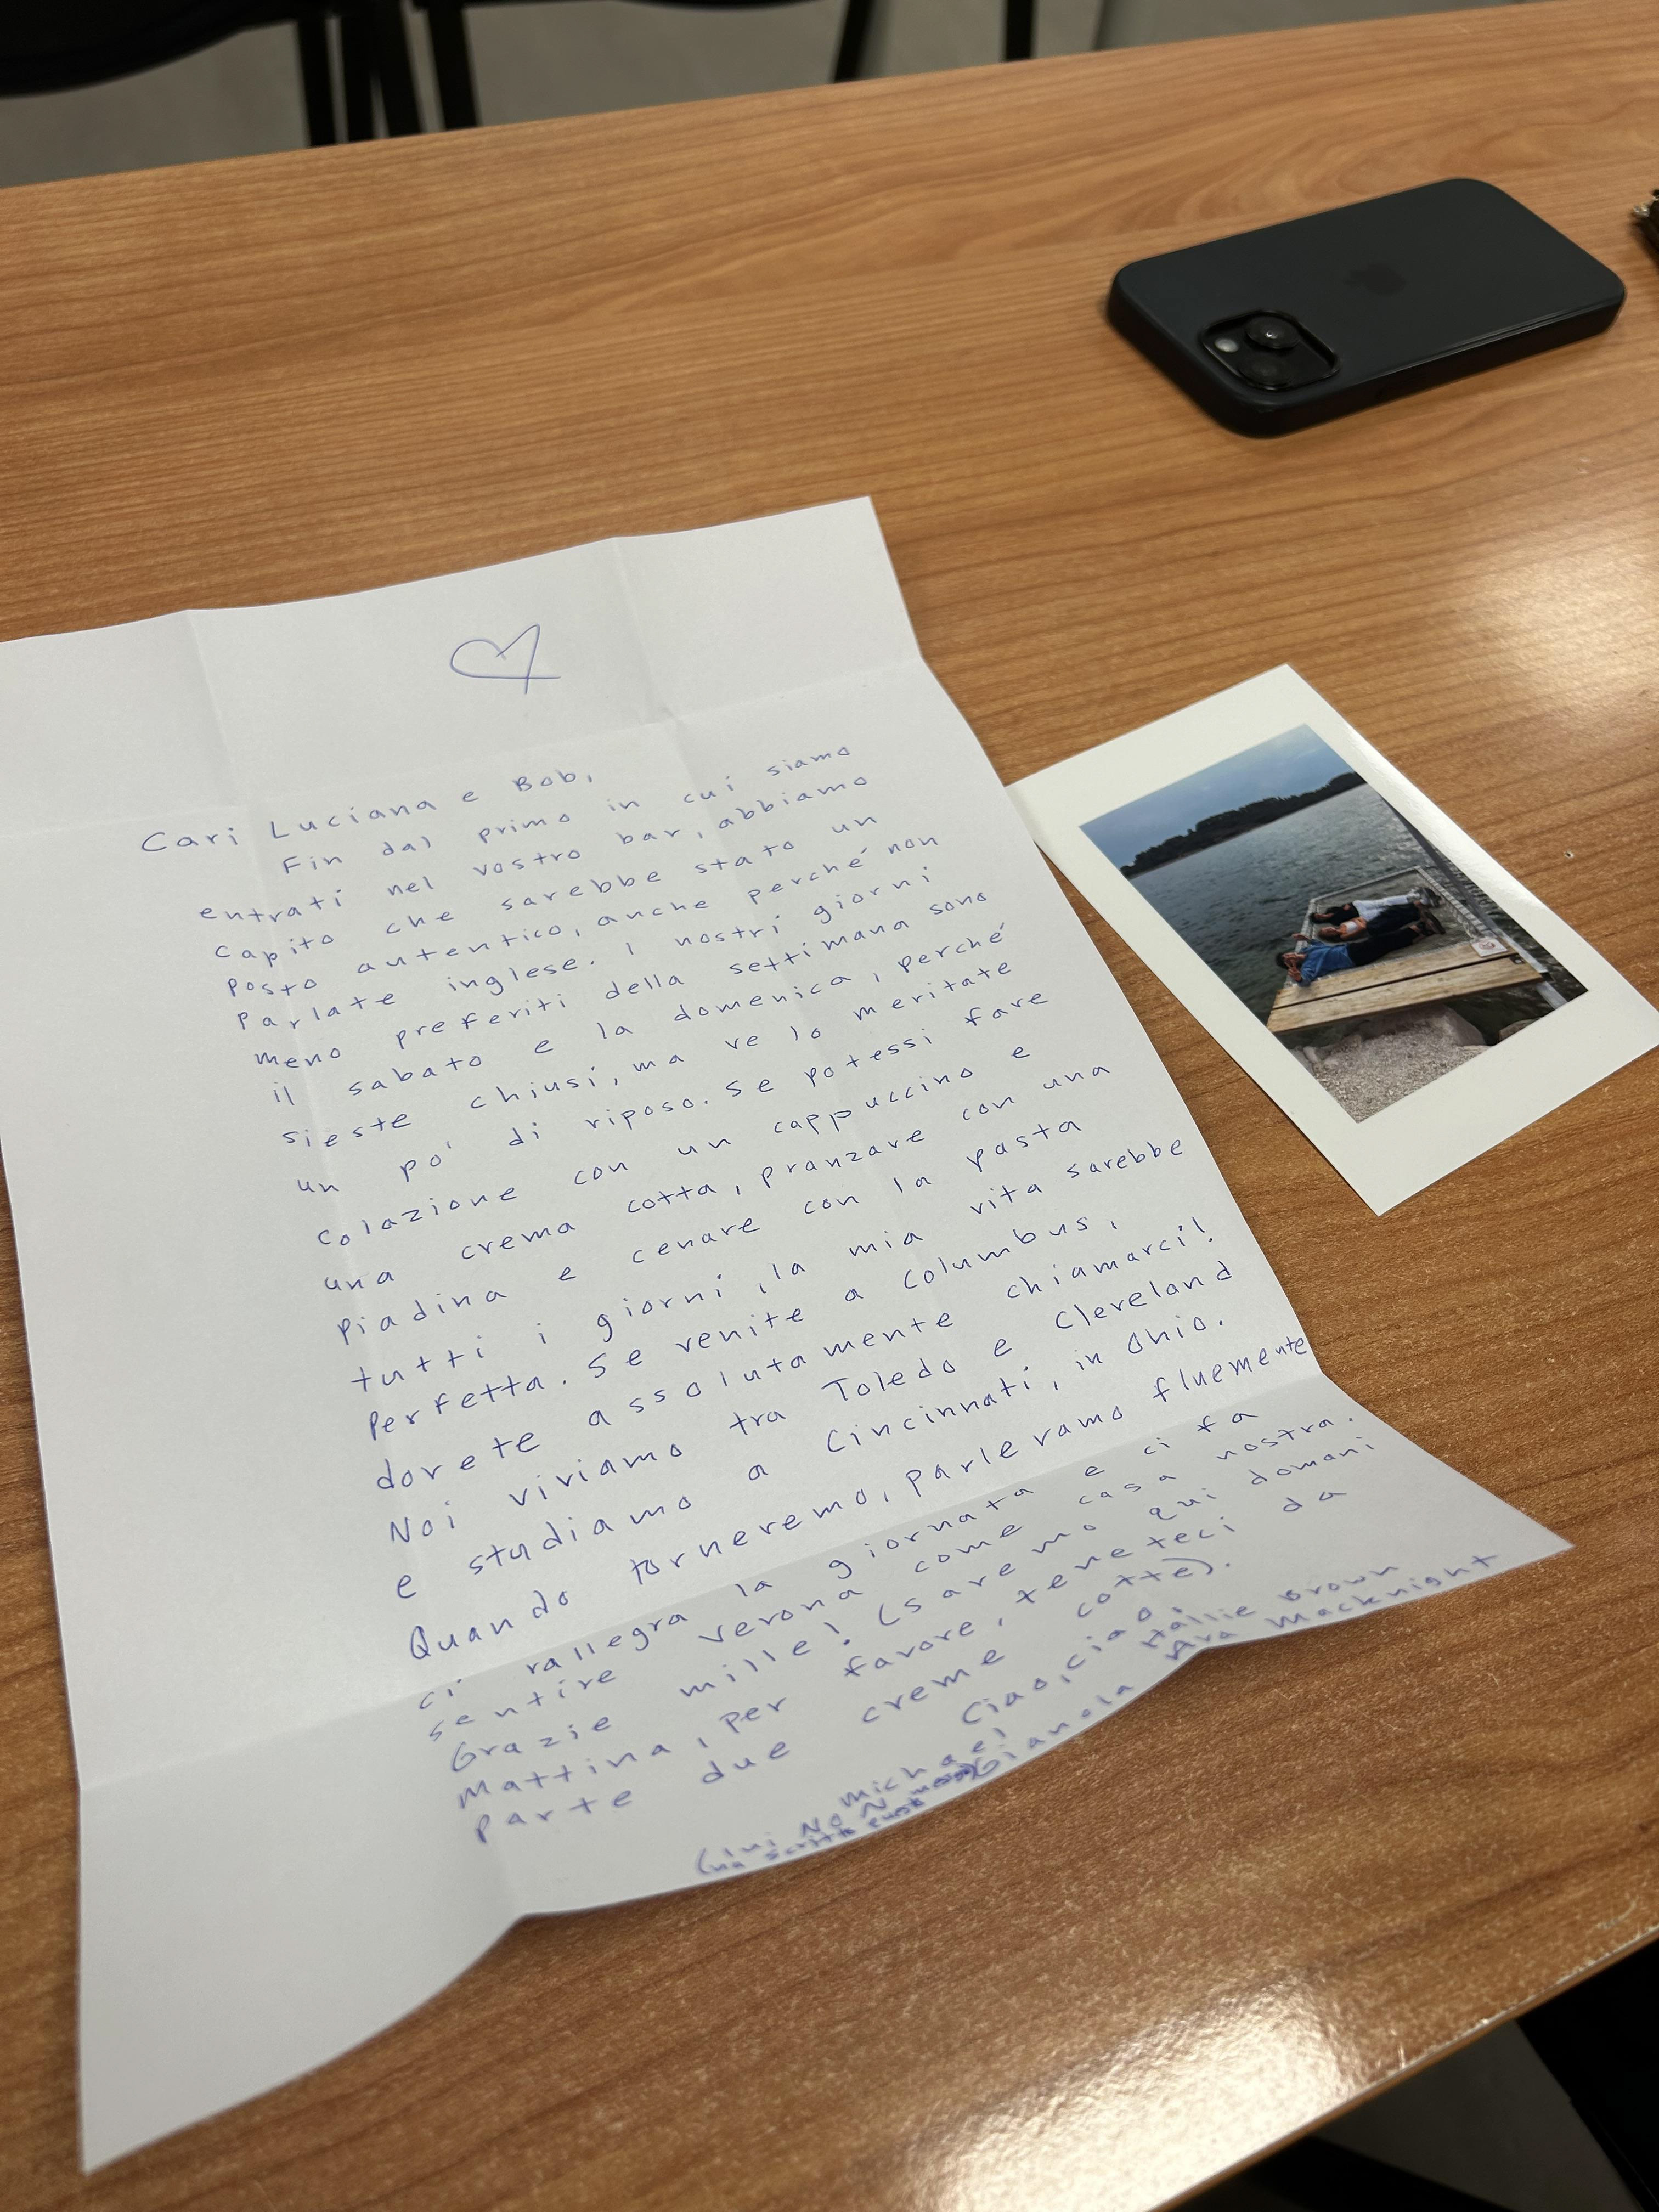 Cari Luciana e Bob,
Fin dal primo in cui siamo
entrati nel vostro bar, abbiamo
capito che sarebbe stato un
posto autentico, anche perché non
parlate inglese. I nostri giorni
meno preferiti della settimana sono
il sabato e la domenica, perché
sieste chiusi, ma ve lo meritate
un po' di riposo. Se potessi fare
colazione con un cappuccino e
una crema cotta, pranzare con una
piadina e cenare con la pasta
tutti i giorni, la mia vita sarebbe
perfetta. Se venite a Columbus,
dovete assolutamente chiamarci!
Noi viviamo tra Toledo e Cleveland
e studiamo a Cincinnati, in Ohio.
Quando torneremo, parleramo fluemente
ci rallegra la giornata e ci fa
sentire Verona come casa nostra.
Grazie mille! (saremo qui domani
mattina, per favore, teneteci da
parte due creme cotte).
Ciao, ciao,
Hallie Brown
Ava Macknight
Michael Gianola
(lui NON
ha scritto